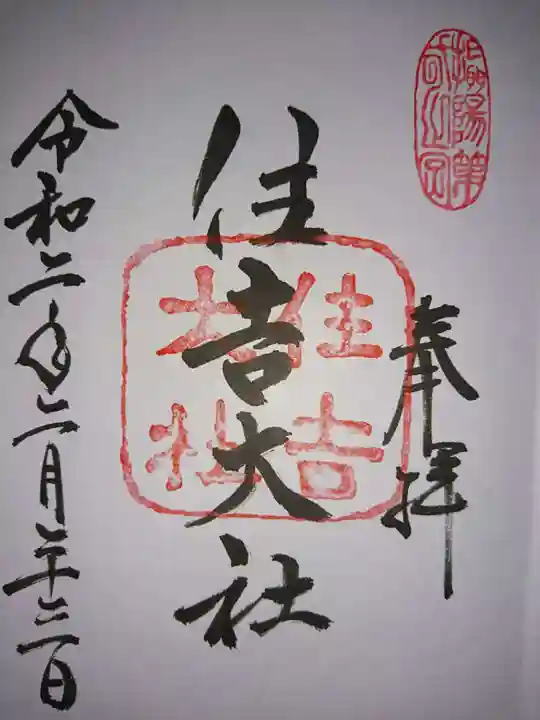 奉拝
住吉大社
住吉
大社
令和二年二月二十三日